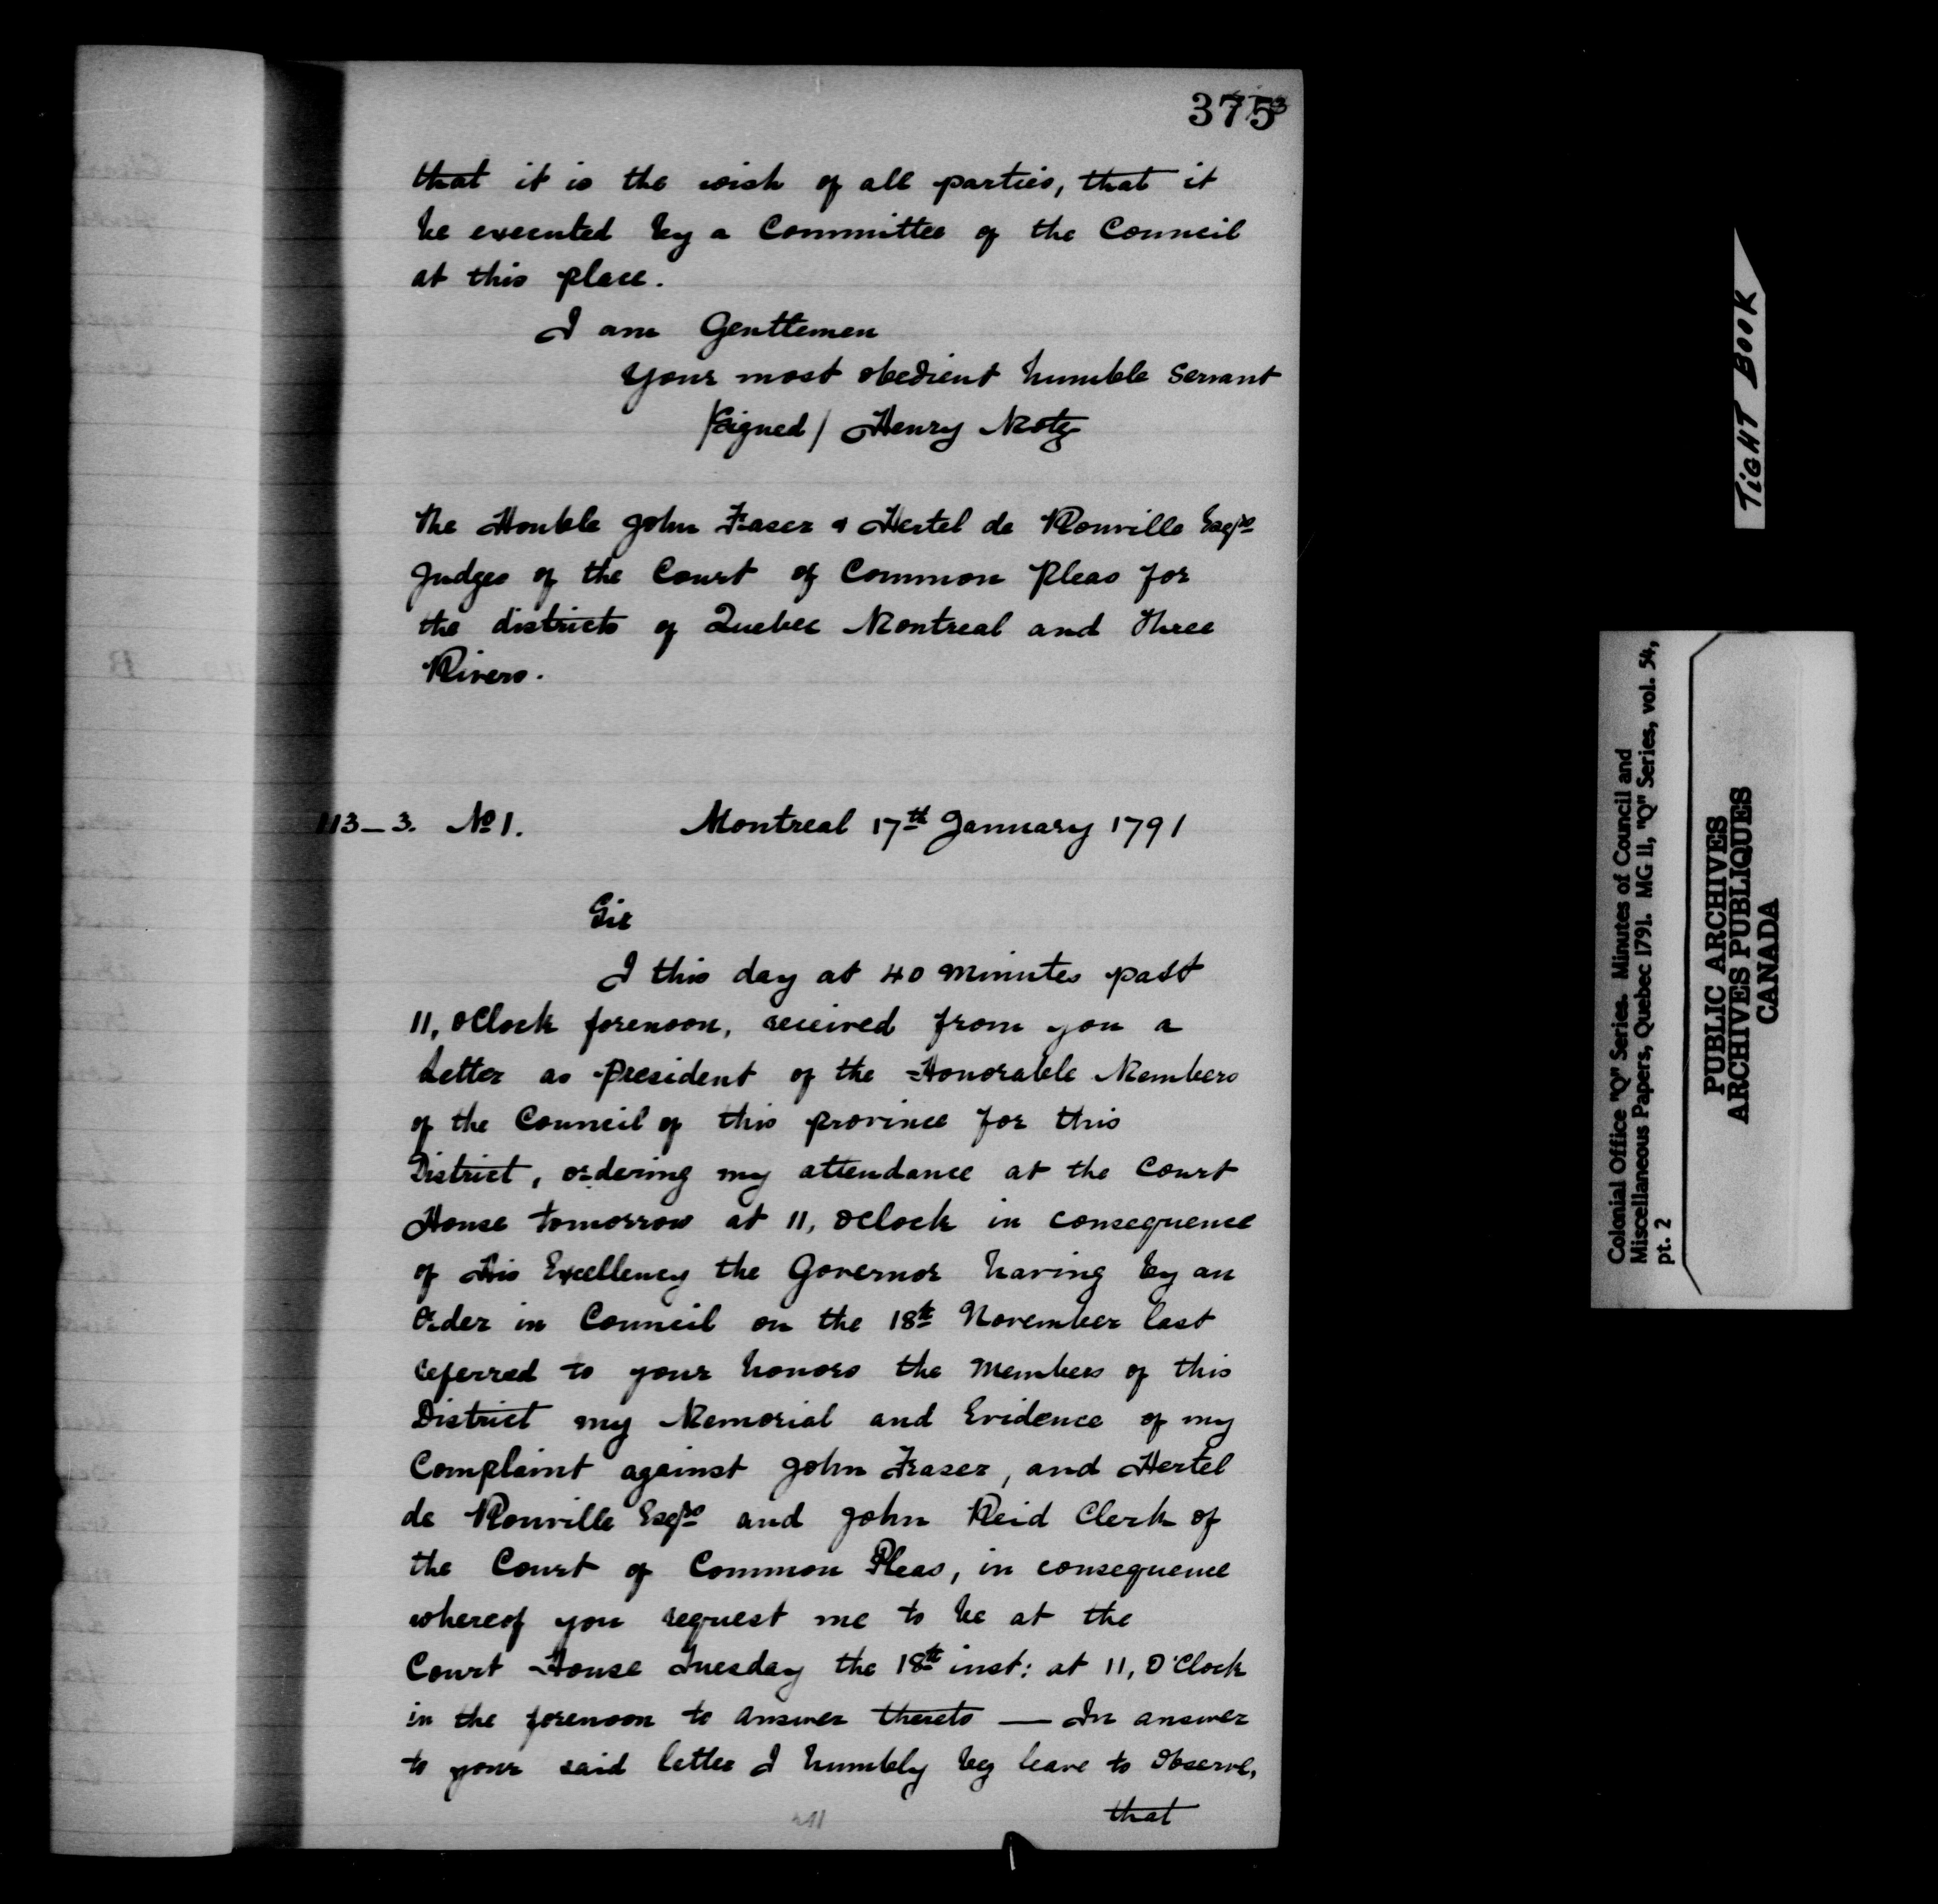 375
that it is the wish of all parties, that it
be executed by a Committee of the Council
at this place.
I am Gentlemen
Your most obedient humble Servant
/Signed/ Henry Motz
The Honble John Fraser & Hertel de Rouville Esqrs
Judges of the Court of Common Pleas for
the districts of Quebec Montreal and Three
Rivers.
113_3. No 1. Montreal 17th January 1791
Sir
I this day at 40 minutes past
11, OClock forenoon, received from you a
Letter as President of the Honorable Members
of the Council of this province for this
District, ordering my attendance at the Court
House tomorrow at 11, OClock in consequence
of His Excellency the Governor having by an
Order in Council on the 18th November last
referred to your honors the Members of this
District my Memorial and Evidence of my
Complaint against John Fraser, and Hertel
de Rouville Esqrs and John Reid Clerk of
the Court of Common Pleas, in consequence
whereof you request me to be at the
Court House Tuesday the 18th inst: at 11, O'Clock
in the forenoon to answer thereto — In answer
to your said letter I humbly beg leave to Observe,
that
TIGHT BOOK
Colonial Office "Q" Series. Minutes of Council and
Miscellaneous Papers, Quebec 1791. MG 11, "Q" Series, vol. 54,
pt. 2
PUBLIC ARCHIVES
ARCHIVES PUBLIQUES
CANADA